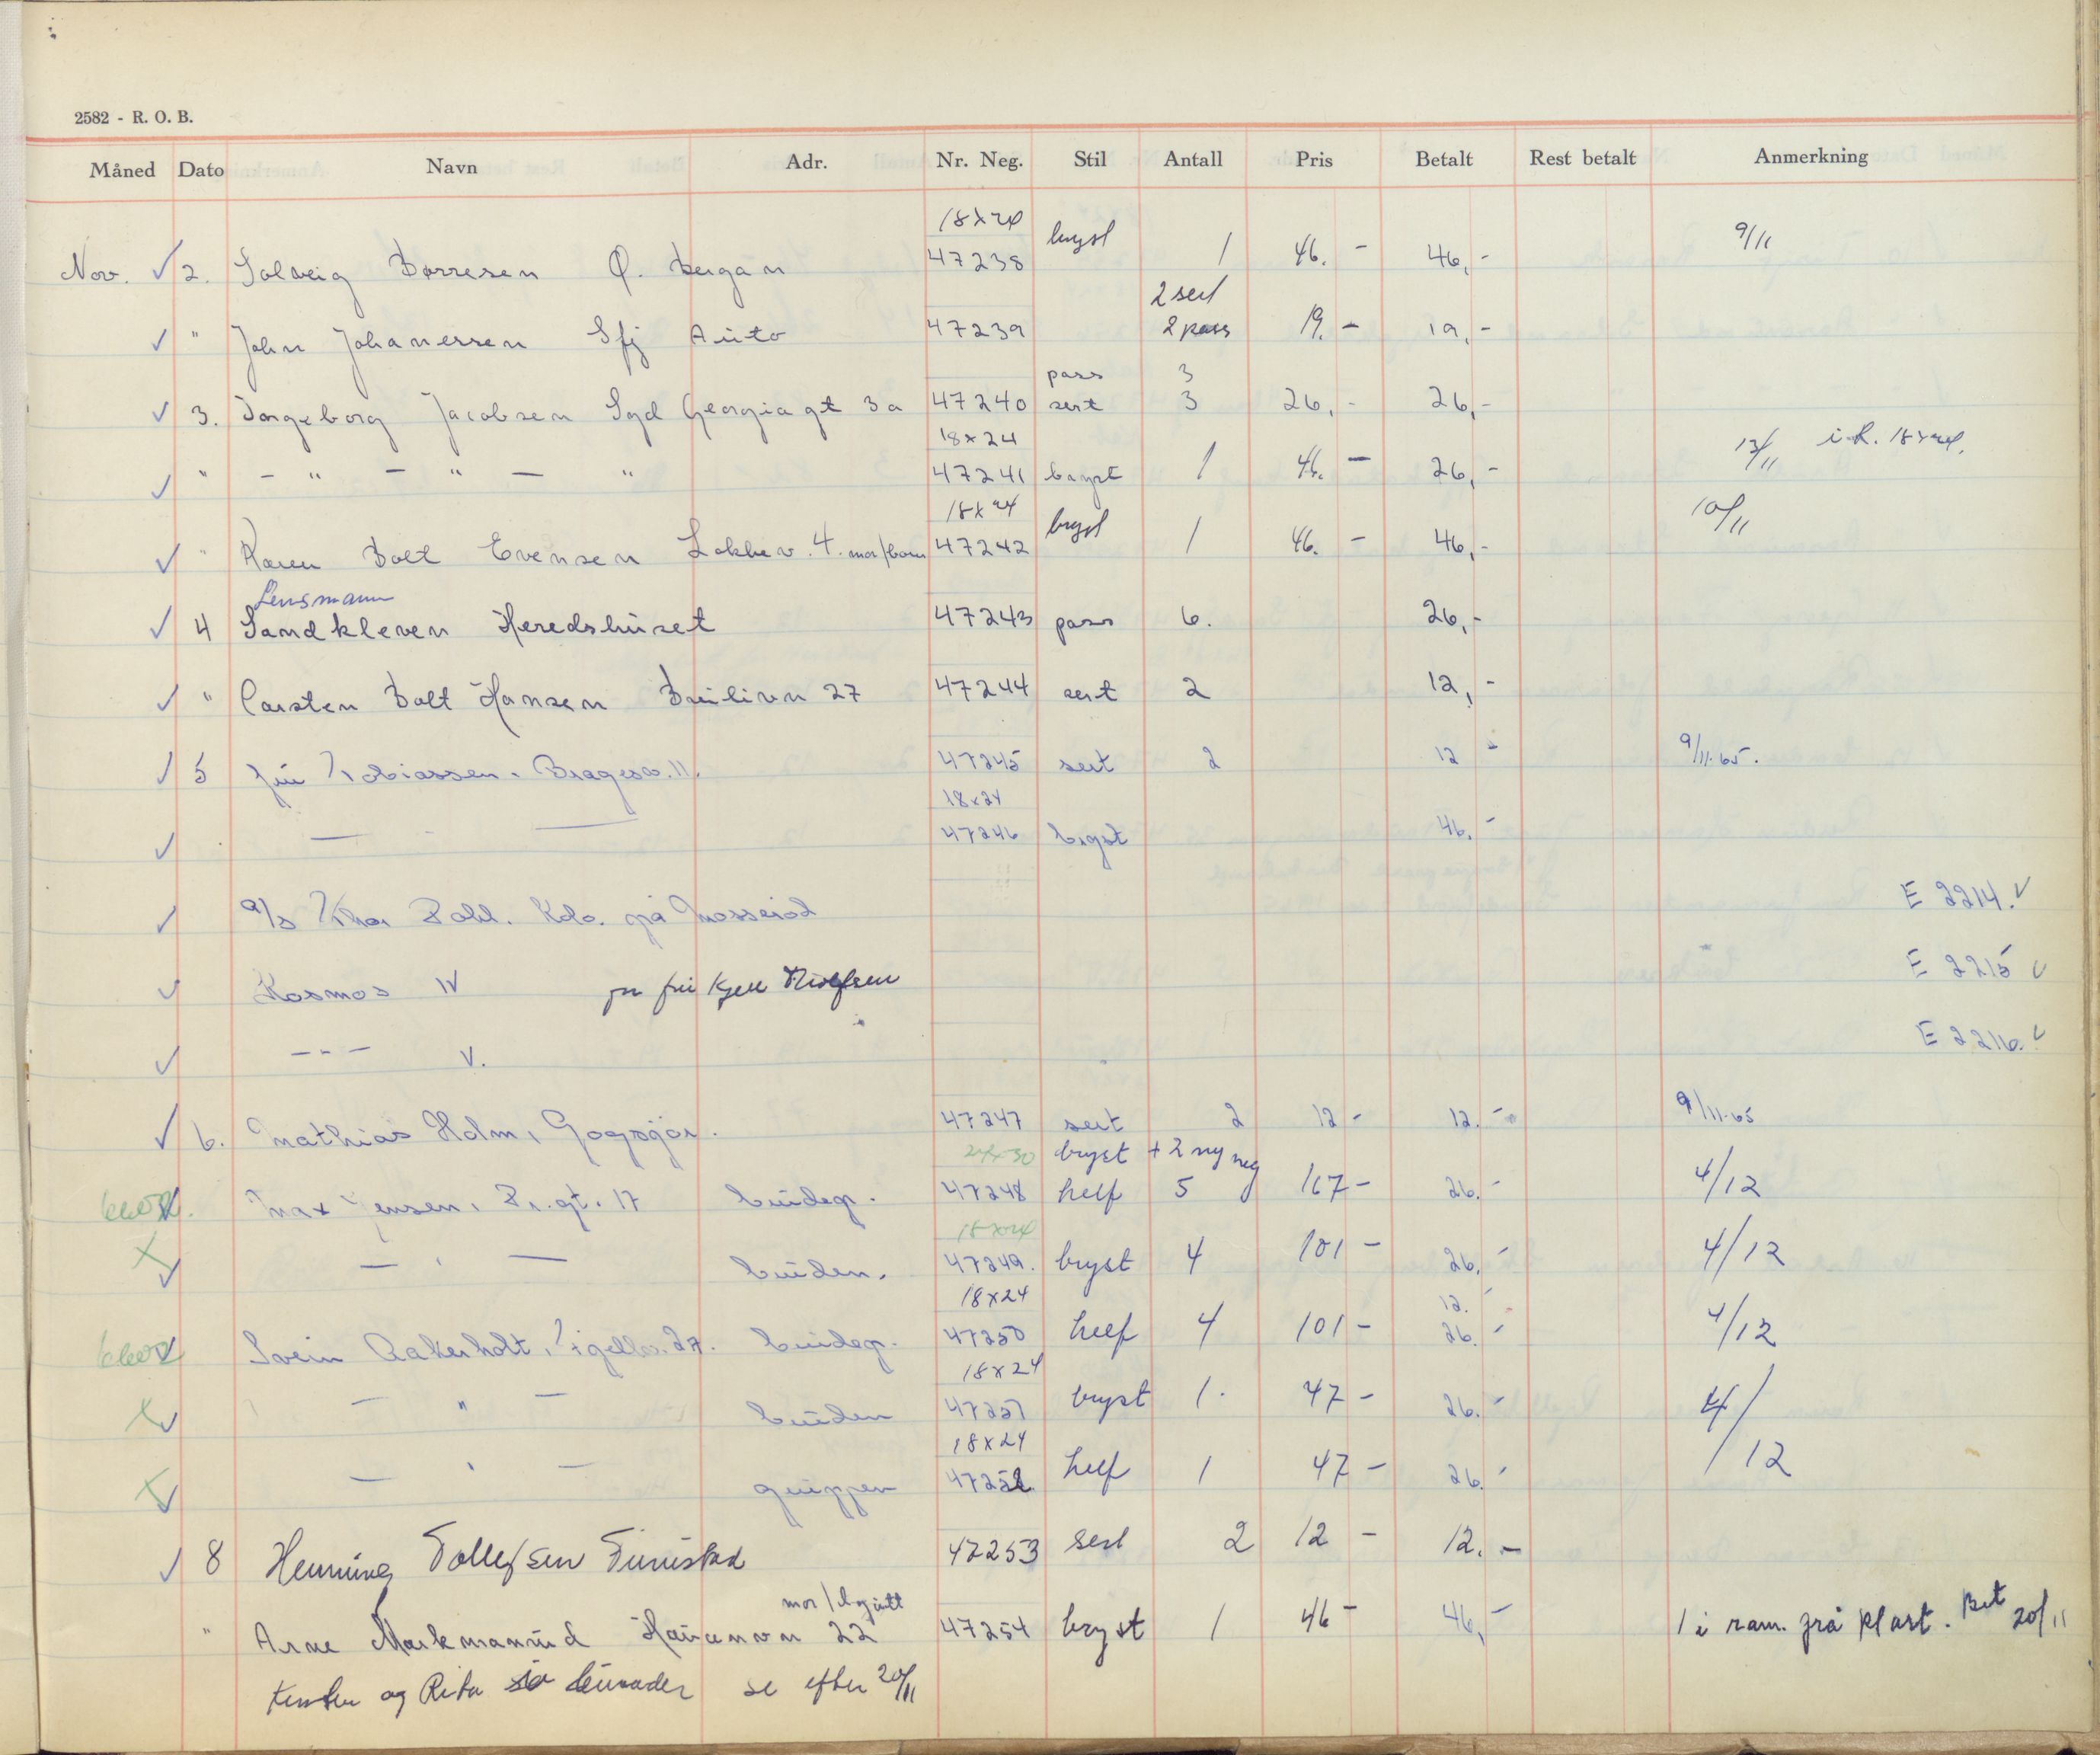 2582 - R. O. B.
Måned Dato Navn Adr. Nr. Neg. Stil Antall Pris Betalt Rest betalt Anmerkning
18x24
Nov. 2. Solveig Børresen Ø. Bergan 47238 bryst 1 46.- 46,- 9/11
2 sert
" John Johanessen Sfj Auto 47239 2 pass 19.- 19,-
pass 3
3. Ingeborg Jacobsen Sgd Georgiagt 3a 47240 sert 3 26,- 26,-
18x24
" - " - " - " 47241 bryst 1 46.- 26,- 12/11 i R. 18x24.
18x24
" Karen Bolt Evensen Løkkev. 4. mor/barn 47242 bryst 1 46.- 46,- 10/11
Lensmann
4 Sandkleven Heredshuset 47243 pass 6. 26,-
" Carsten Bolt Hansen 27 47244 sert 2 12,-
5 Tobiassen. Bragesv. 11. 47245 sert 2 12 - 9/11.65.
18x24
— " — 47246 bryst 46.-
a/s Thor Dahl. på E 2214.
Kosmos IV fru Kjell E 2215
- " - V. E 2216.
6. Mathias Holm, Gogsjør. 47247 sert 2 12 - 12.- 9/11-65
24x30 bryst + 2 ny neg
Max Jensen, Pr.gt. 17 brudep. 47248 helf 5 167 - 26.- 4/12
18x24
— " — bruden. 47249. bryst 4 101 - 26.- 4/12
18x24 12.-
Svein Aakerholt, 27. brudep. 47250 helf 4 101 - 26.- 4/12
18x24
— " — bruden 47251 bryst 1. 47 - 26.- 4/12
18x24
— " — gruppen 47252 helf 1 47 - 26.-
8 Henning Tollefsen Furustad 47253 sert 2 12 - 12.-
mor/
" Arne Markmanrud 22 47254 bryst 1 46 - 46,- 1 i ram. grå Plast. Bet 20/11
og Rita se efter 20/11